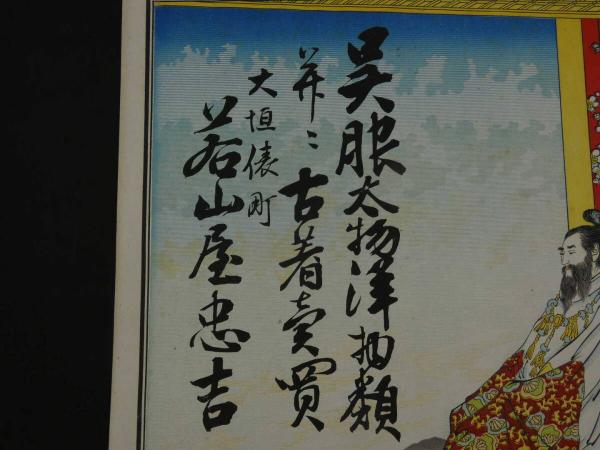 呉服太物洋物類
并ニ古着売買
大垣俵町
若山屋忠吉